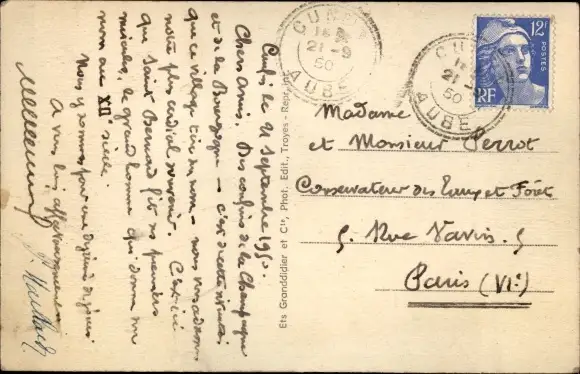 Cunfin le 21 Septembre 1950.
Chers Amis. Des confins de la Champagne
et de la Bourgogne — c'est de cette situation
que ce village tire son nom — nous vous adressons
notre plus cordial souvenir. C'est ici
que Saint Bernard fit ses premiers
miracles, le grand homme qui donna son
nom au XII siècle.
Nous y sommes pour une dizaine de jours
A vous bien affectueusement
Ets Granddidier et Cie, Phot. Edit., Troyes - Repr. Int.
CUNFIN
18
21-9
50
AUBE
CUNFIN
18
21-9
50
AUBE
12F
POSTES
RF
Madame
et Monsieur Perrot
Conservateur des Eaux et Forêt
5. Rue Vavin. 5
Paris (VIe)